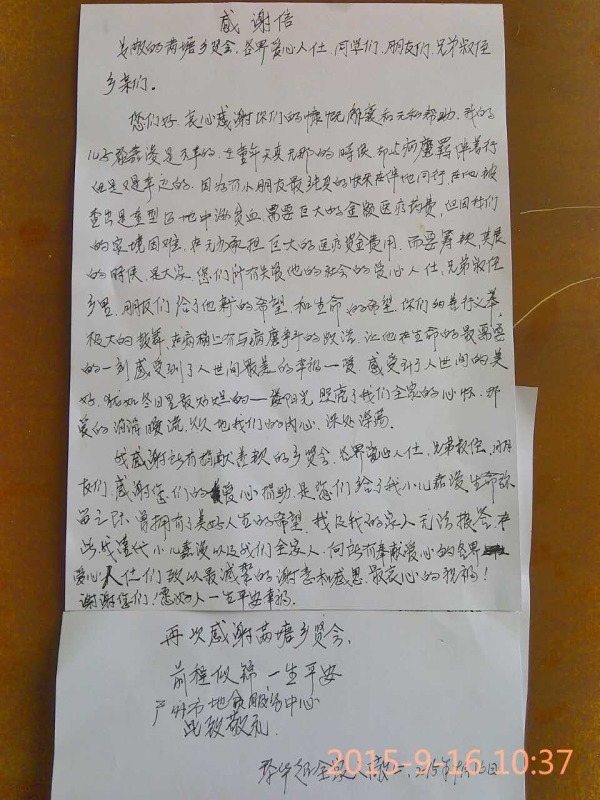 感谢信
尊敬的 塘乡贤会、各界爱心人仕、同学们、朋友们、兄弟叔侄
乡亲们。
您们好、衷心感谢你们的慷慨解囊和无私帮助、我的
儿子 嘉浚是不幸的、在童年天真无邪的时候、却与病魔 伴着行
但是又是幸运的。因为有小朋友最纯真的快乐在伴他同行、在他被
查出是重型的地中海贫血、需要巨大的金额医疗药费、但因我们
的家境困难、在无力承担巨大的医疗资金费用、而要筹款、
的时候、是大家、您们所有关爱他的社会的爱心人仕、兄弟叔侄
乡里、朋友们给了他新的希望、和生命的希望、你们的善行义举
极大的鼓舞、在病 上 与病魔争斗的 、让他在生命的最需要
的一刻感受到了人世间最美的幸福一爱、感受到了人世间的美
好、犹如冬日里最灿烂的一缕阳光、照亮了我们全家的心怀、那
爱的涓涓暖流、 地我们的内心、深处荡荡。
我感谢所有捐献善款的乡贤会、各界爱心人仕、兄弟叔侄、朋
友们、感谢您们的爱心捐助、是您们给了我小儿嘉浚生命弥
留之际、曾拥有了美好人生的希望、我及我的家人无法报答、在
此、我谨代小儿嘉浚以及我们全家人、向所有奉献爱心的各界
爱心人仕们致以最诚挚的谢意和感恩、最衷心的祝福！
谢谢您们！愿好人一生平安幸福。
再次感谢 塘乡贤会、
前程似锦 一生平安
广州市地贫服务中心
此致敬礼
华 全家人敬上、2015年9月16日
2015-9-16 10:37